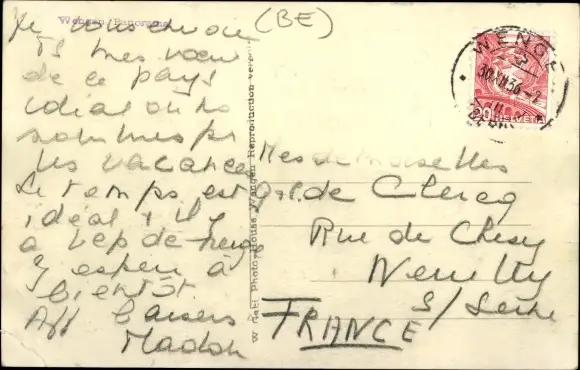 (BE)
Wengen Panorama
Je vous envoie
ts mes vœux
de ce pays
idéal où ns
sommes pr
les vacances
Le temps est
idéal, il y
a bep de neige
J'espère à
bientôt
Aff baisers
W. Gabi Photo-House Wengen Reproduction
WENGEN
30.XII.36
20 HELVETIA
Mesdemoiselles
de Clercq
Rue de Chézy
Neuilly
s/ Seine
FRANCE